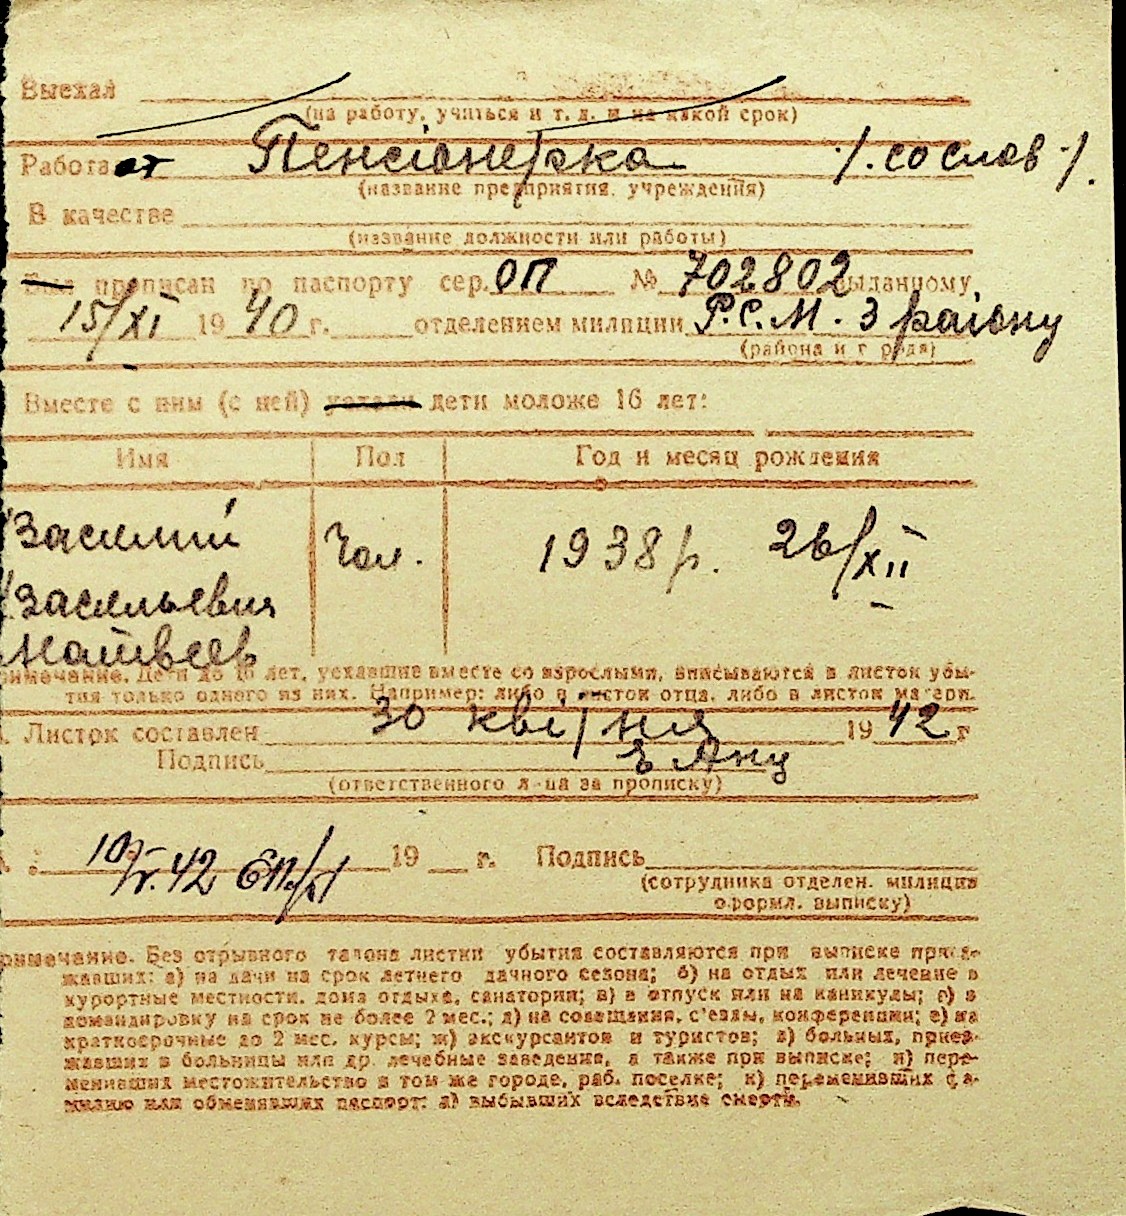 Выехал
(на работу, учиться и т. д. и на какой срок)
Работает Пенсіонерка /. со слов ./.
(название предприятия, учреждения)
В качестве
(название должности или работы)
Был прописан по паспорту сер. ОП № 702802 выданному
15/XI 1940 г. отделением милиции Р.С.М. 3 району
(района и города)
Вместе с ним (с ней) дети моложе 16 лет:
Имя Пол Год и месяц рождения
Василий Чол. 1938 р. 26/XII
Васильевич
Матвеев
Примечание. Дети до 16 лет, уехавшие вместе со взрослыми, вписываются в листок убы-
тия только одного из них. Например: либо в листок отца, либо в листок матери.
Листок составлен 30 квітня 1942 г
Подпись
(ответственного л-ца за прописку)
10/V. 42 19 г. Подпись
(сотрудника отделен. милиции
оформл. выписку)
Примечание. Без отрывного талона листки убытия составляются при выписке приез-
жавших: а) на дачи на срок летнего дачного сезона; б) на отдых или лечение в
курортные местности, дома отдыха, санатории; в) в отпуск или на каникулы; г) в
командировку на срок не более 2 мес.; д) на совещания, с'езды, конференции; е) на
краткосрочные до 2 мес. курсы; ж) экскурсантов и туристов; з) больных, приез-
жавших в больницы или др. лечебные заведения, а также при выписке; и) пере-
менивших местожительство в том же городе, раб. поселке; к) переменивших фа-
милию или обменявших паспорт; л) выбывших вследствие смерти.